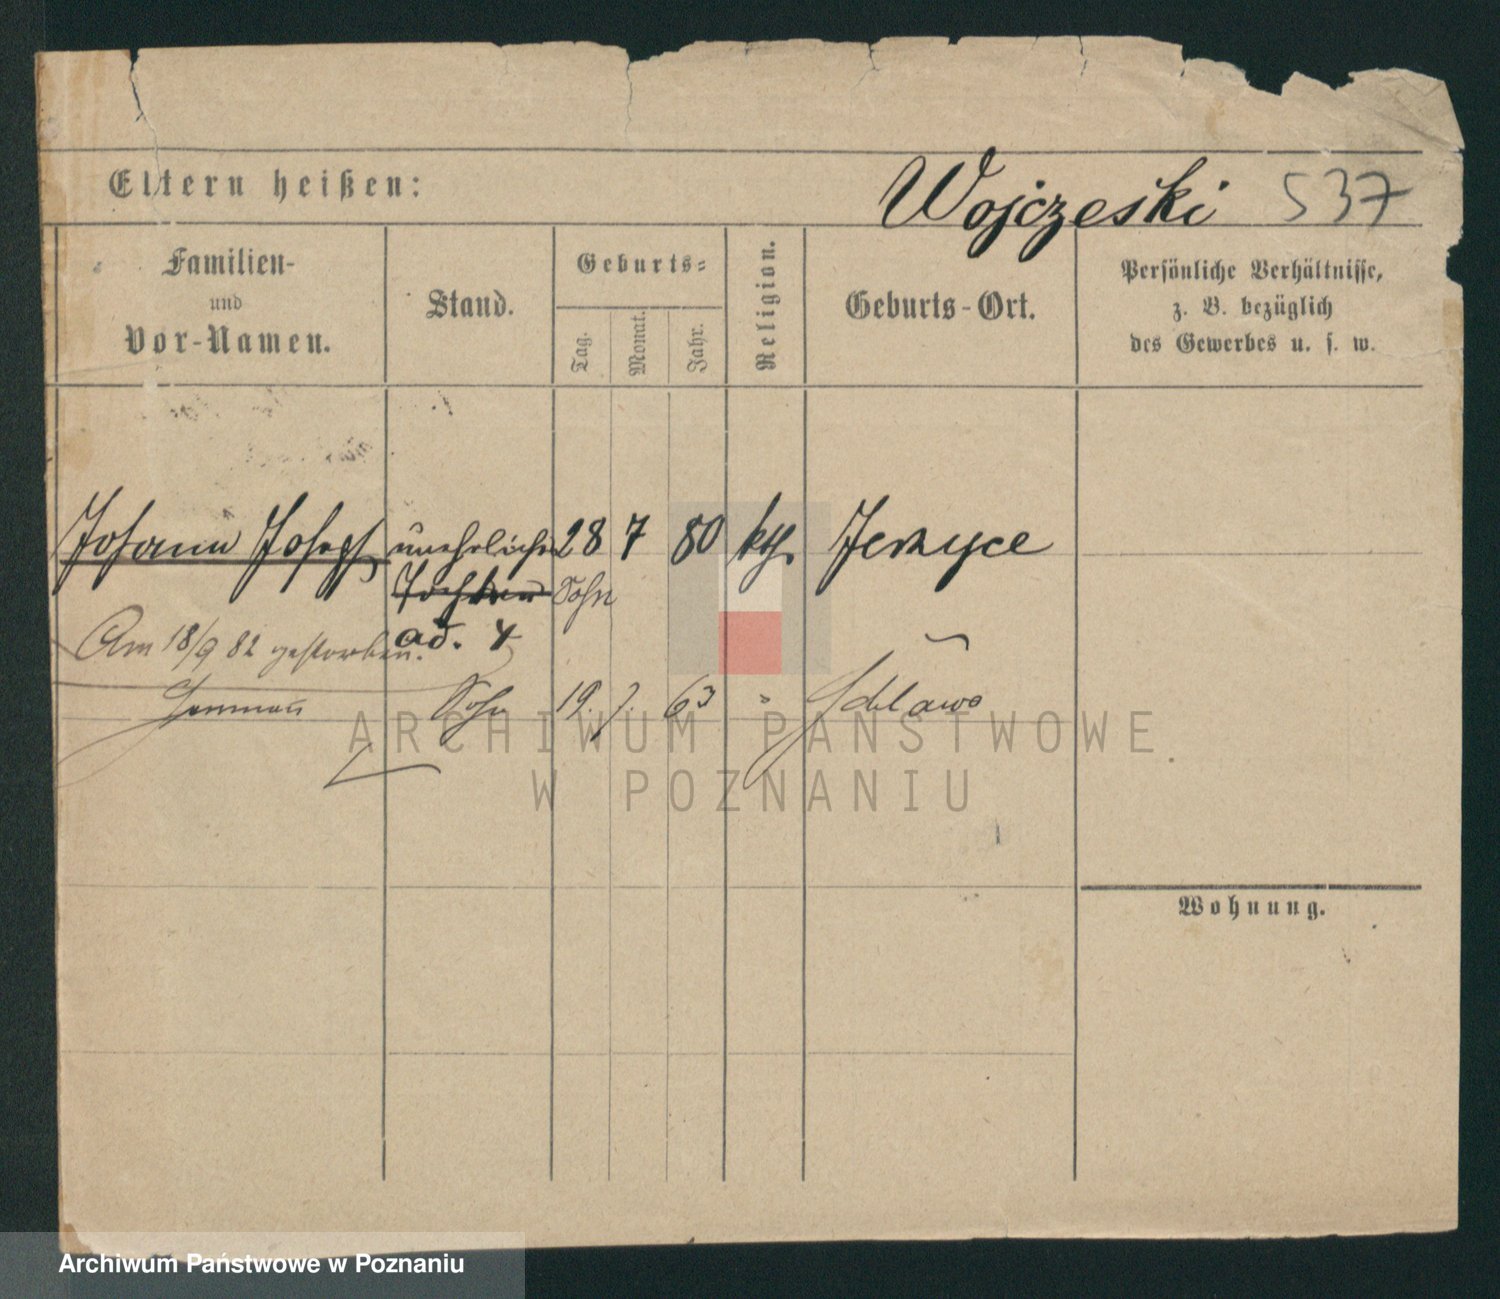 Eltern heißen:
Wojczeski 537
Familien-
und
Vor-Namen.
Stand.
Geburts-
Tag.
Monat.
Jahr.
Religion.
Geburts-Ort.
Persönliche Verhältnisse,
z. B. bezüglich
des Gewerbes u. s. w.
Johann Joseph unehelicher 28 7 80 kth. Jerzyce
Sohn
ad. 4
Am 18/9 82 gestorben.
Sohn 19. 7. 63 " Schlawe
Wohnung.
ARCHIWUM PAŃSTWOWE
W POZNANIU
Archiwum Państwowe w Poznaniu